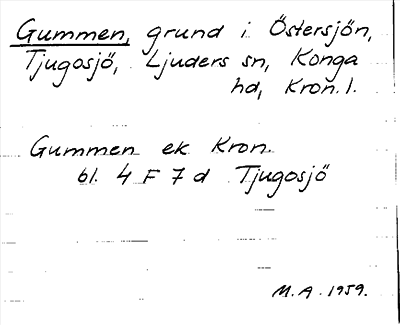 Gummen, grund i Östersjön,
Tjugosjö, Ljuders sn, Konga
hd, Kron. l.
Gummen ek Kron.
bl. 4 F 7 d Tjugosjö
M.A. 1959.